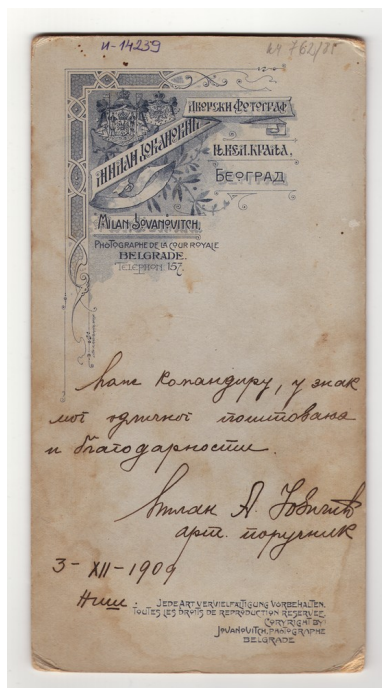 И-14239
762/85
Милан Јовановић
Дворски Фотограф
Њ.Вел. Краља.
Београд
Milan Jovanovitch,
Photographe de la Cour Royale
Belgrade.
Telephon. 157.
командиру, у знак
мог одличног поштовања
и благодарности.
Милан А.
арт. поручник
3-XII-1909
Ниш.
Jede Art Vervielfältigung Vorbehalten.
Toutes les Droits de Reproduction Reservée.
Copyright by
Jovanovitch, Photographe
Belgrade